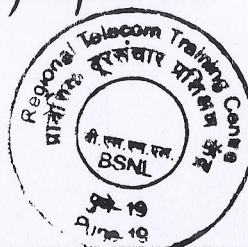 Regional Telecom Training Centre
प्रादेशिक दूरसंचार प्रशिक्षण केंद्र
बी.एस.एन.एल.
BSNL
पुणे-19
Pune 19